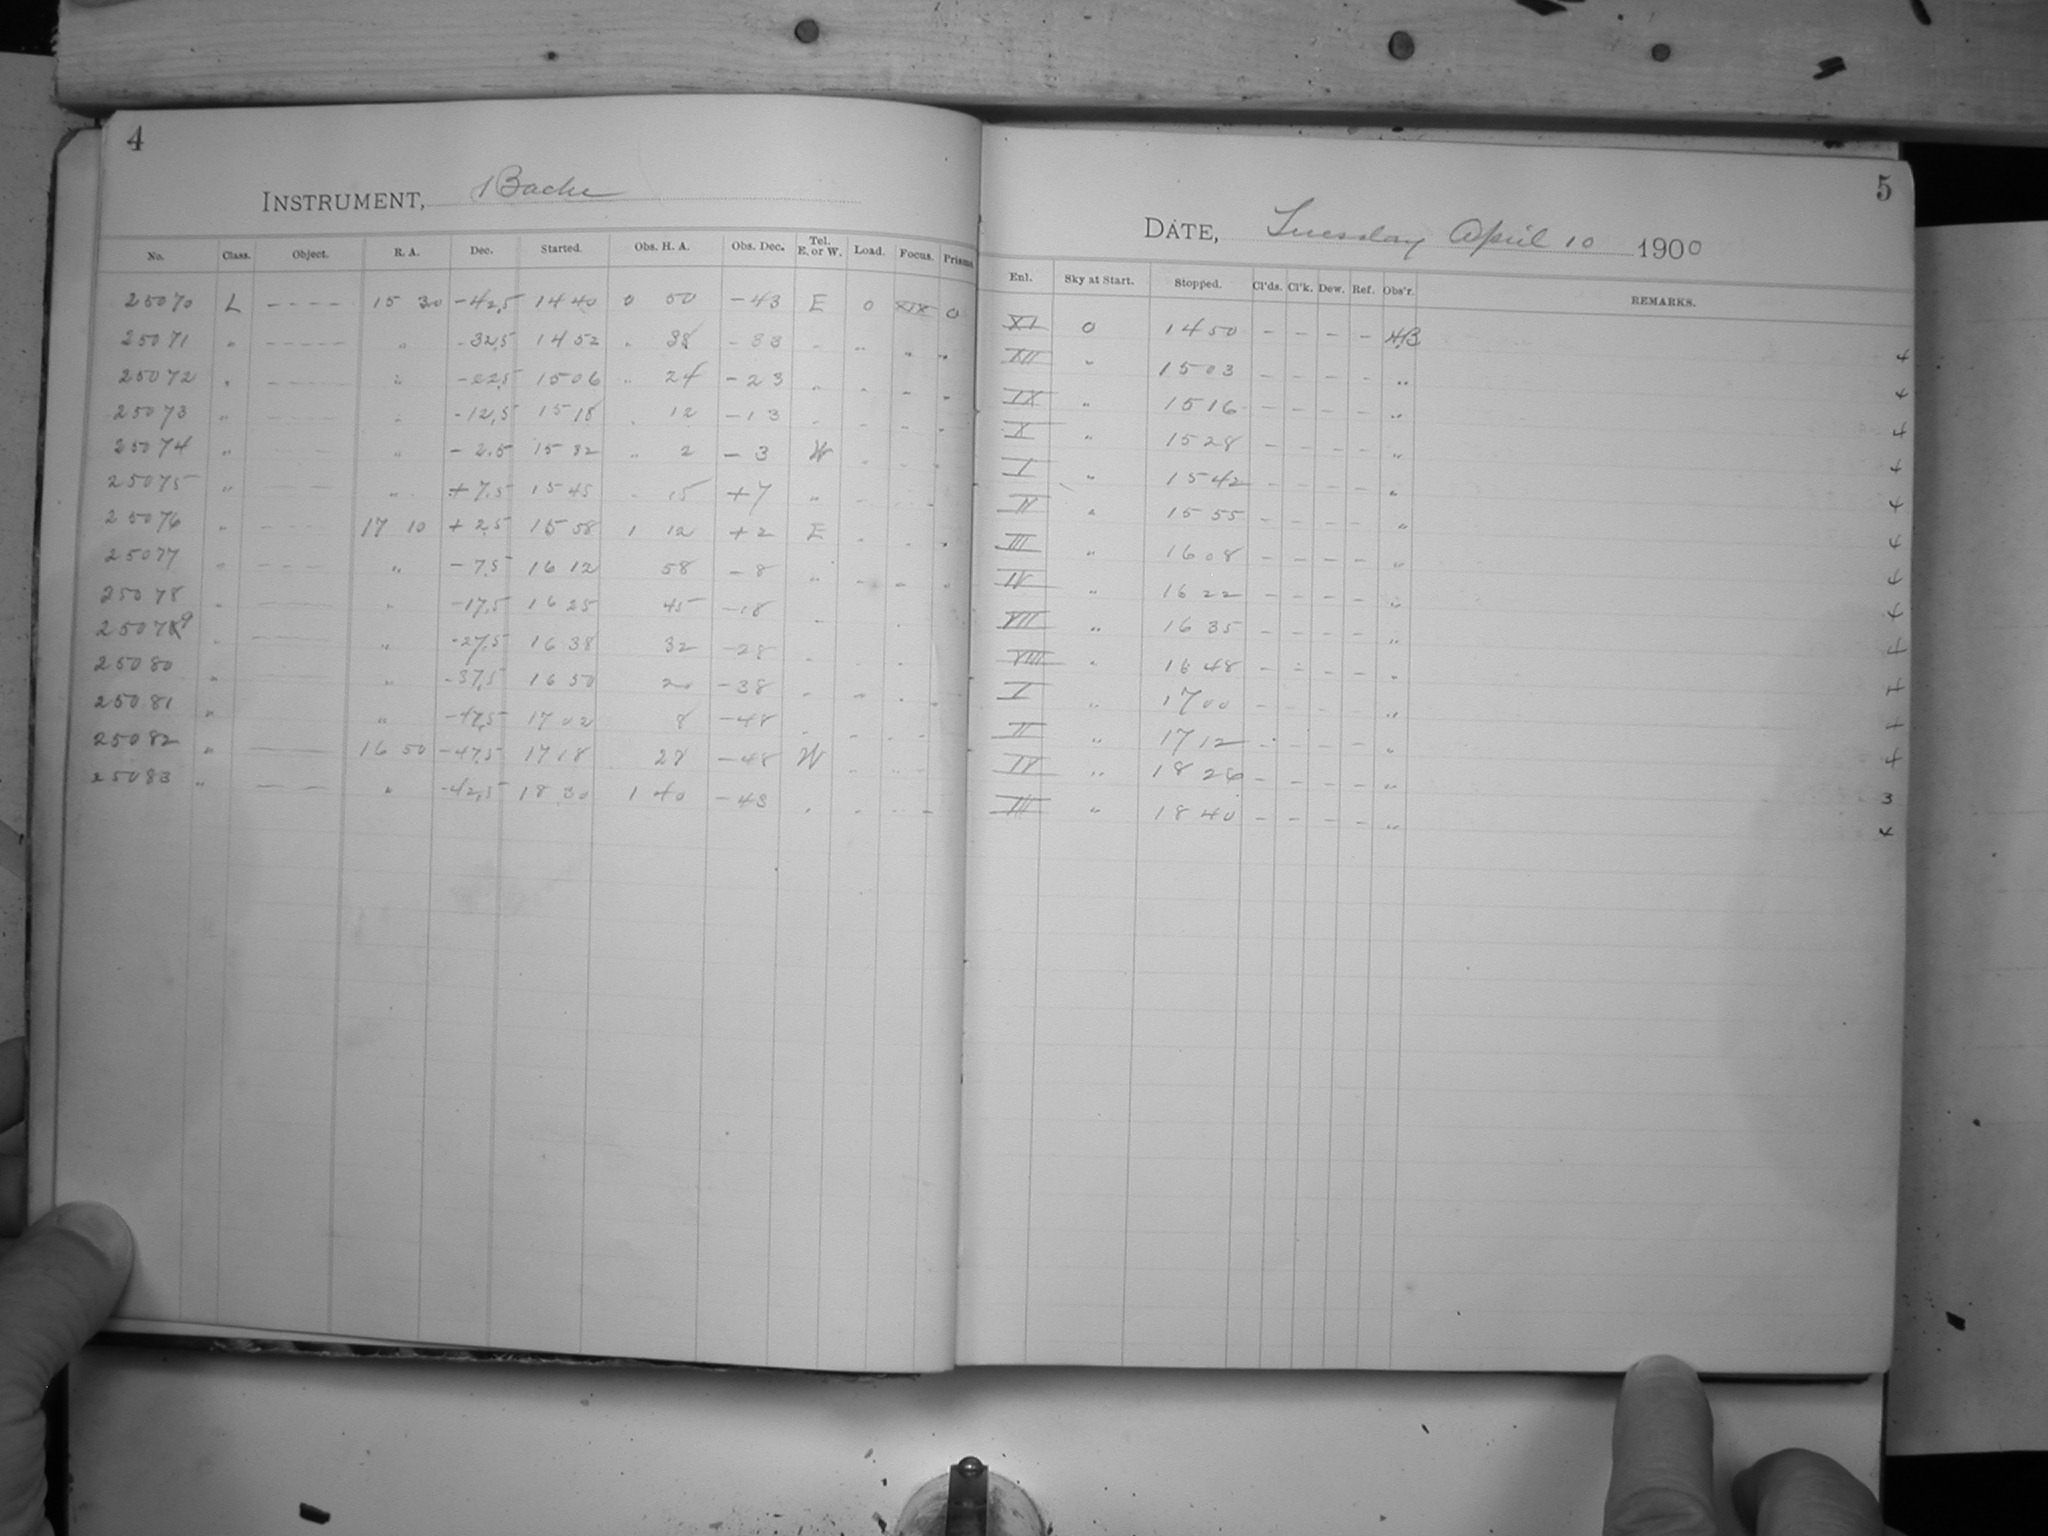 4
INSTRUMENT, Bache
No. Class. Object. R. A. Dec. Started. Obs. H. A. Obs. Dec. Tel. E. or W. Load. Focus. Prisms.
25070 L - - - - 15 30 -42,5 14 40 0 50 -43 E 0 XIX 0
25071 " - - - - - " -32,5 14 52 " 38 -33 " " " "
25072 " - - - - " -22,5 15 06 " 24 -23 " " " "
25073 " - - - " -12,5 15 18 " 12 -13 " " " "
25074 " - - " -2.5 15 32 " 2 -3 W " " "
25075 " - - " +7.5 15 45 " 15 +7 " " " "
25076 " - - - 17 10 +2,5 15 58 1 12 +2 E " " "
25077 " - - - " -7,5 16 12 58 -8 " " " "
25078 " - - " -17,5 16 25 45 -18 " " "
25079 " - - " -27,5 16 38 32 -28 " "
25080 " - - " -37,5 16 50 20 -38 " " " "
25081 " - - " -47,5 17 02 8 -48 " " " "
25082 " - - 16 50 -47,5 17 18 28 -48 W " " "
25083 " - - " -42,5 18 30 1 40 -43 " " " "
5
DATE, Tuesday April 10 1900
Enl. Sky at Start. Stopped. Cl'ds. Cl'k. Dew. Ref. Obs'r. REMARKS.
XI 0 14 50 - - - - 
XII " 15 03 - - - - " 4
IX " 15 16 - - - - " 4
X " 15 28 - - - - " 4
I " 15 42 - - - - " 4
II " 15 55 - - - - " 4
III " 16 08 - - - - " 4
IV " 16 22 - - - - " 4
VII " 16 35 - - - - " 4
VIII " 16 48 - - - - " 4
I " 17 00 - - - - " 4
II " 17 12 - - - - " 4
IV " 18 26 - - - - " 4
III " 18 40 - - - - " 3
4